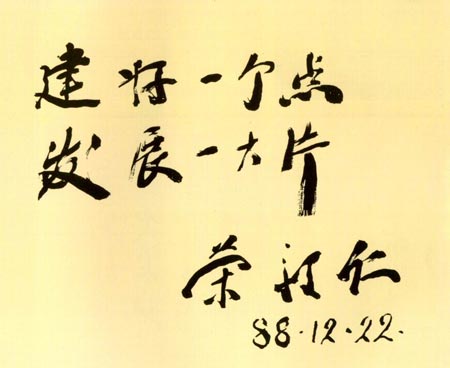 建好一个点
发展一大片
荣毅仁
88.12.22.